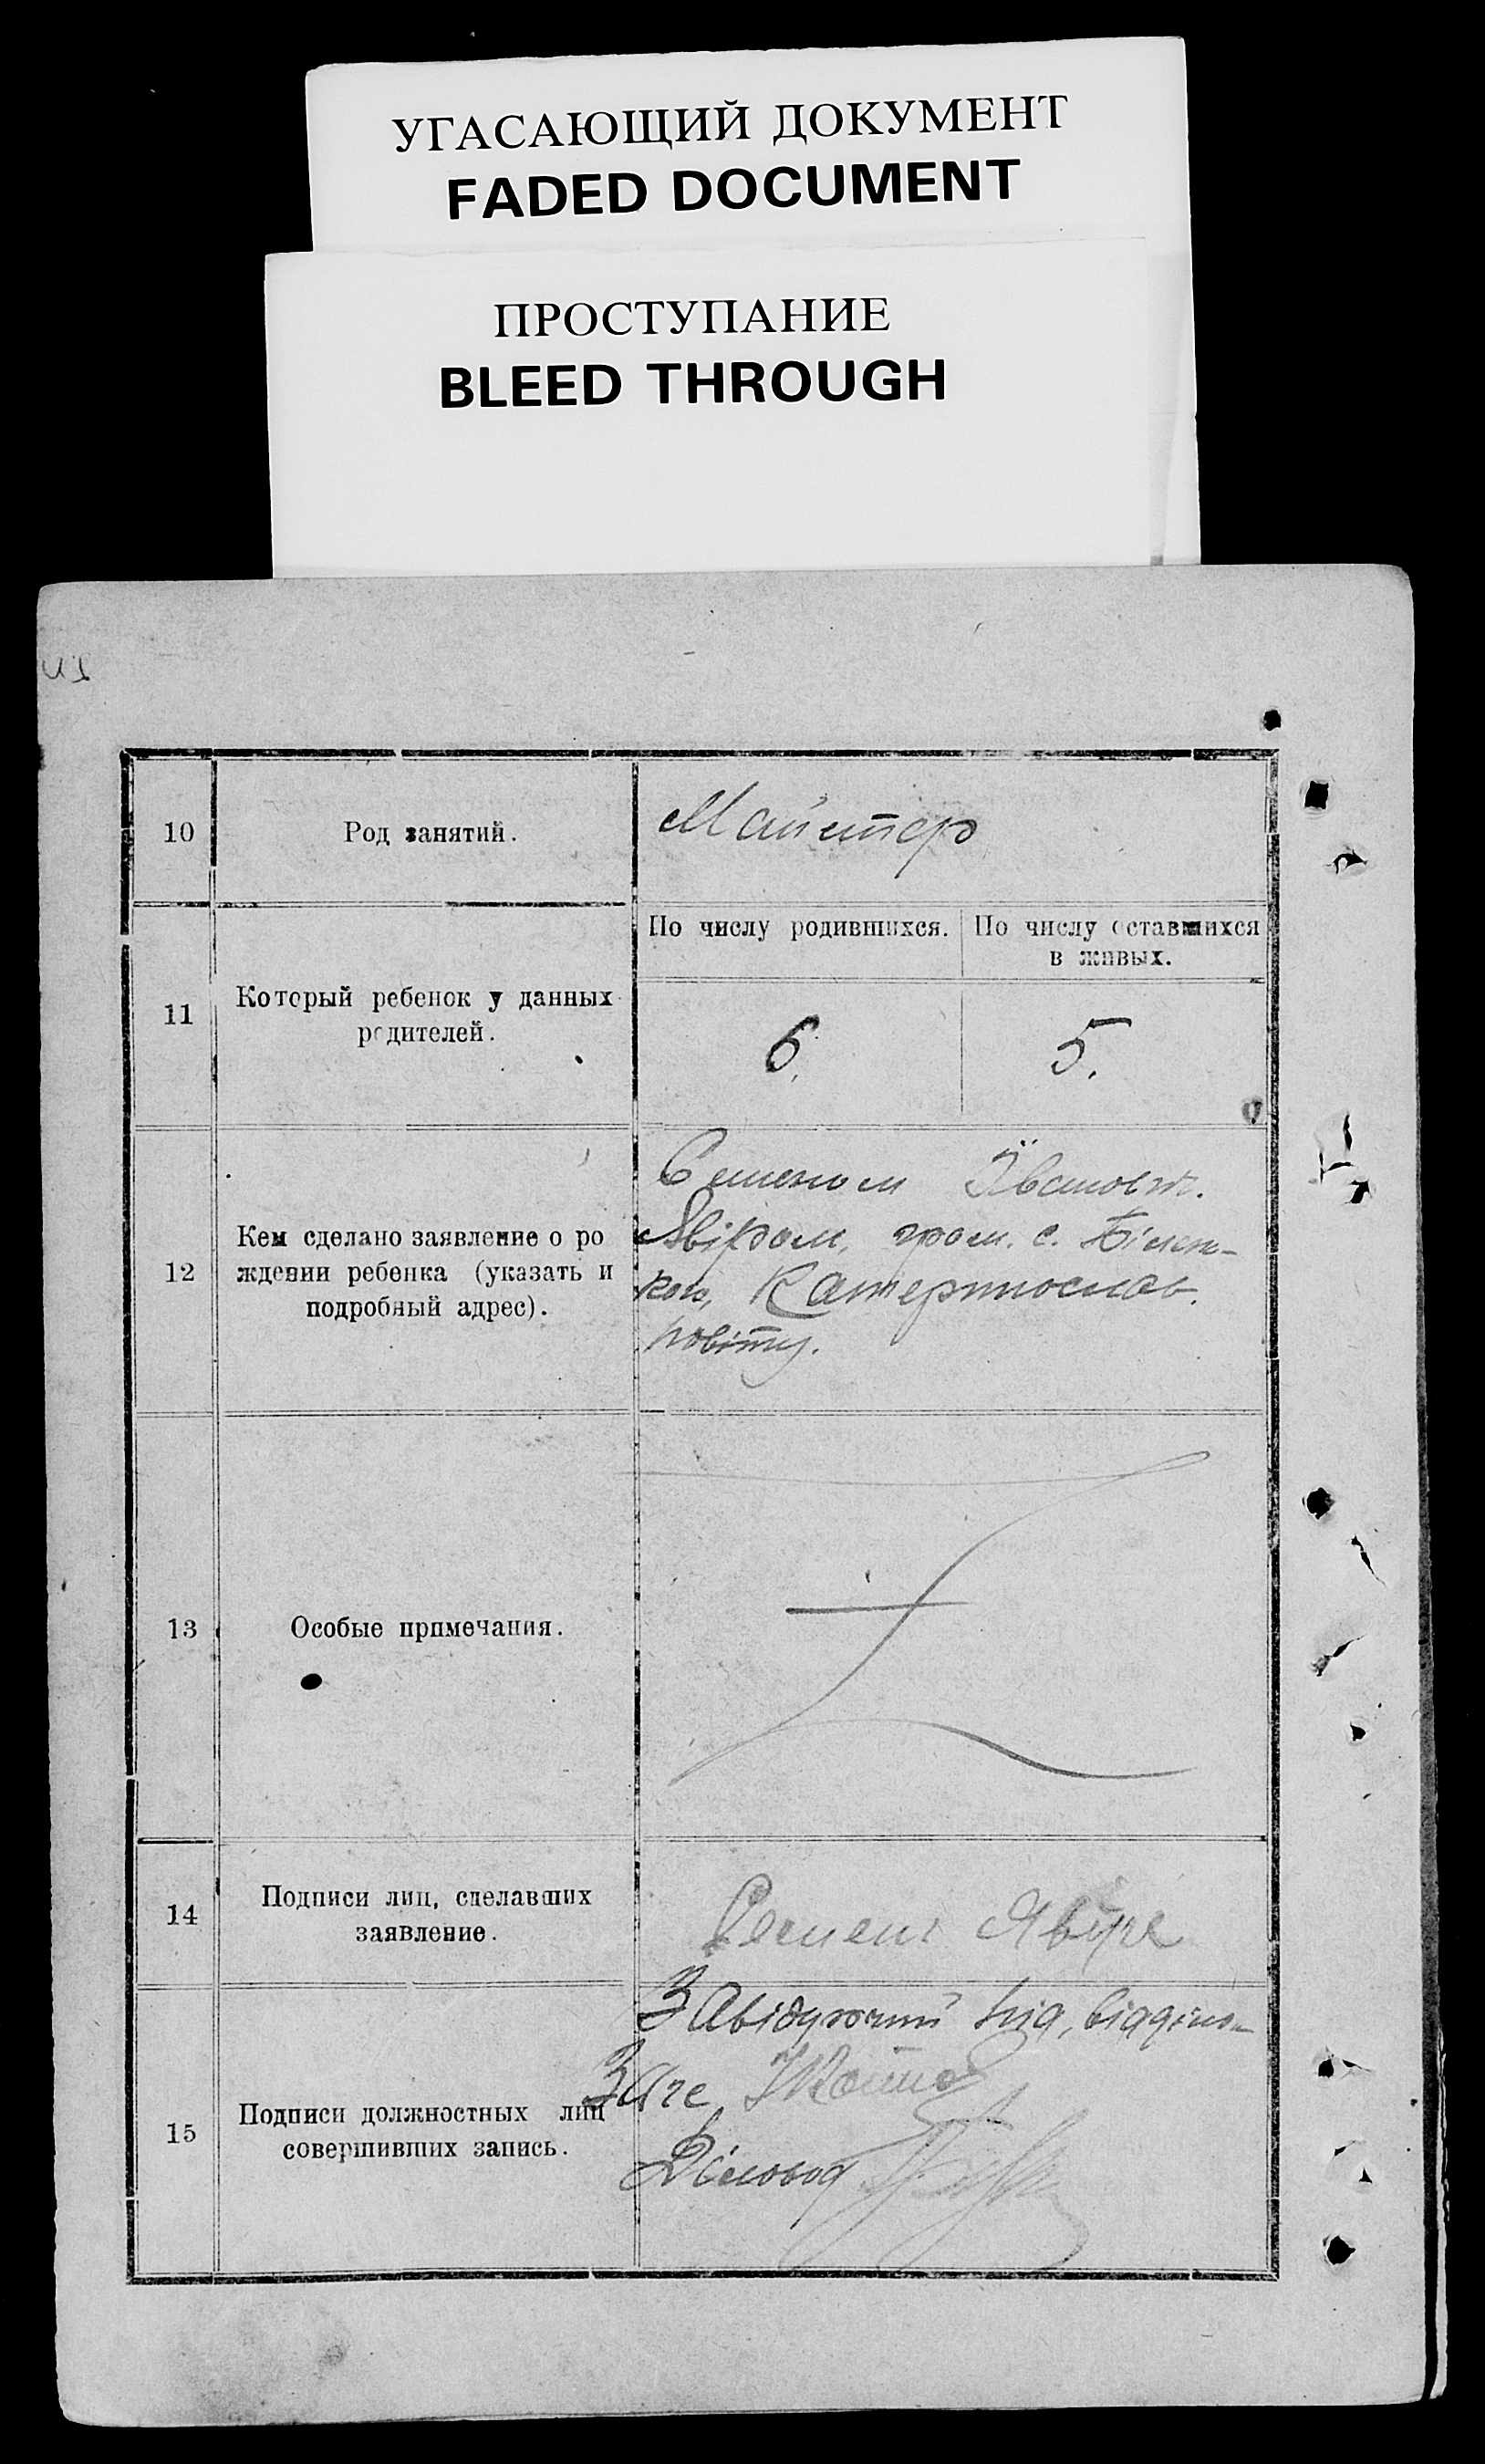 УГАСАЮЩИЙ ДОКУМЕНТ
FADED DOCUMENT
ПРОСТУПАНИЕ
BLEED THROUGH
10
Род занятий.
Майстер
11
Который ребенок у данных
родителей.
По числу родившихся.
По числу оставшихся
в живых.
6.
5.
12
Кем сделано заявление о ро
ждении ребенка (указать и
подробный адрес).
Семеном Івановіч.
гром. с. Білень-
кого, Катеринослав.
повіту.
13
Особые примечания.
14
Подписи лиц, сделавших
заявление.
Семенъ
15
Подписи должностных лиц
совершивших запись.
Завідуючий від, відділо-
Загс
Діловод